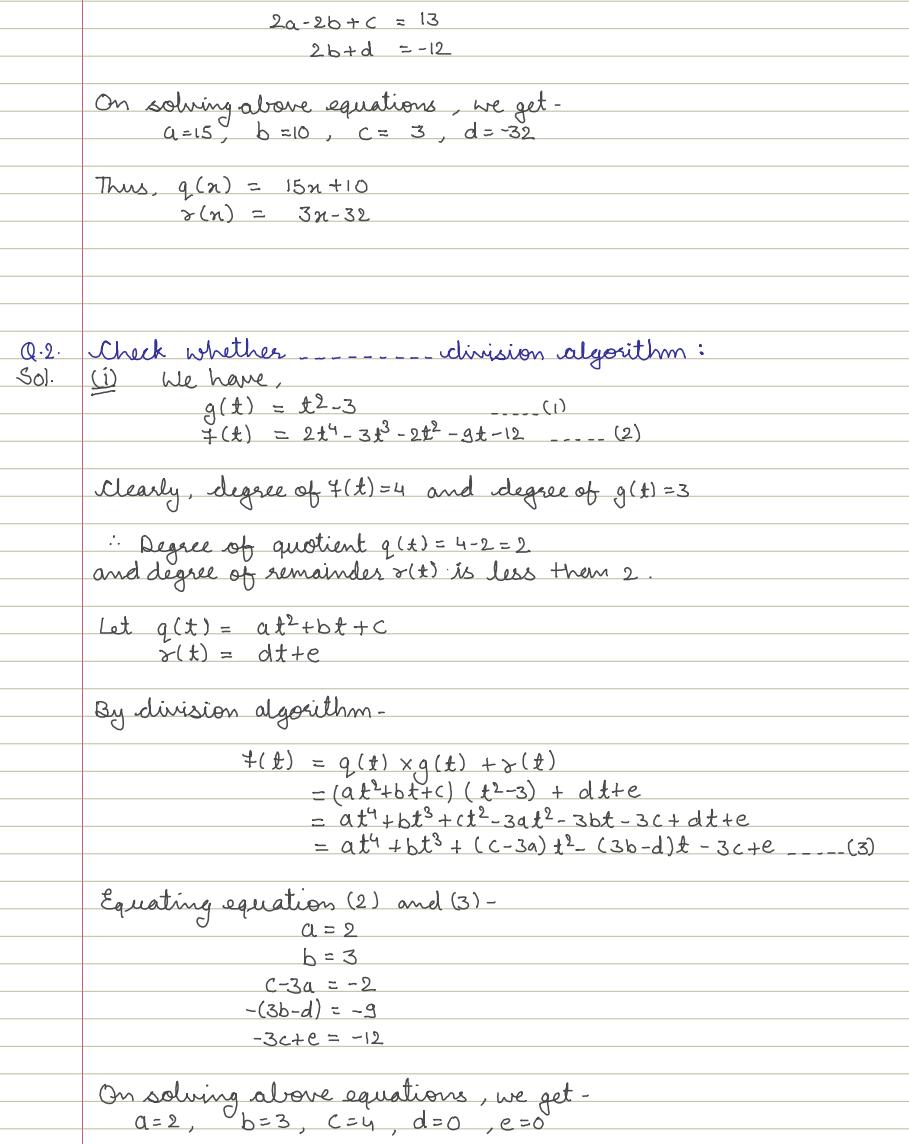 2a-2b+c = 13
2b+d = -12
On solving above equations, we get -
a=15, b=10, c= 3, d=-32
Thus, q(x) = 15x+10
r(x) = 3x-32
Q.2. Check whether _________ division algorithm :
Sol. (i) We have,
g(t) = t²-3 _____(1)
f(t) = 2t⁴-3t³-2t²-9t-12 _____ (2)
Clearly, degree of f(t)=4 and degree of g(t)=3
∴ Degree of quotient q(t)= 4-2=2
and degree of remainder r(t) is less them 2.
Let q(t)= at²+bt+c
r(t)= dt+e
By division algorithm-
f(t) = q(t) ×g(t) +r(t)
=(at²+bt+c) (t²-3) + dt+e
= at⁴+bt³+ct²-3at²-3bt-3c+dt+e
= at⁴+bt³+(c-3a)t²-(3b-d)t-3c+e _____(3)
Equating equation (2) and (3)-
a=2
b=3
c-3a = -2
-(3b-d) = -9
-3c+e = -12
On solving above equations, we get-
a=2, b=3, c=4, d=0, e=0